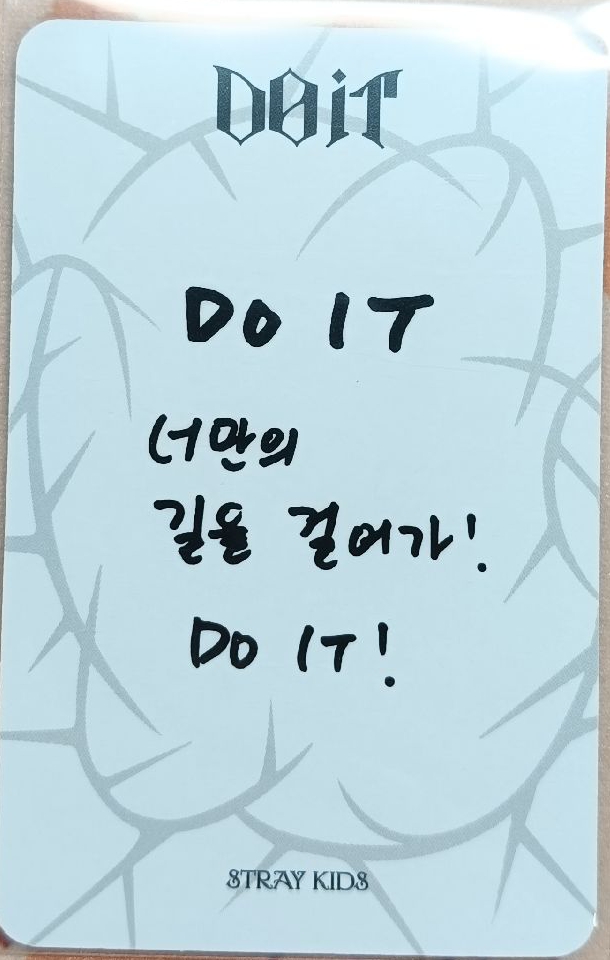 DOiT
DO IT
너만의
길을 걸어가!
DO IT!
STRAY KIDS